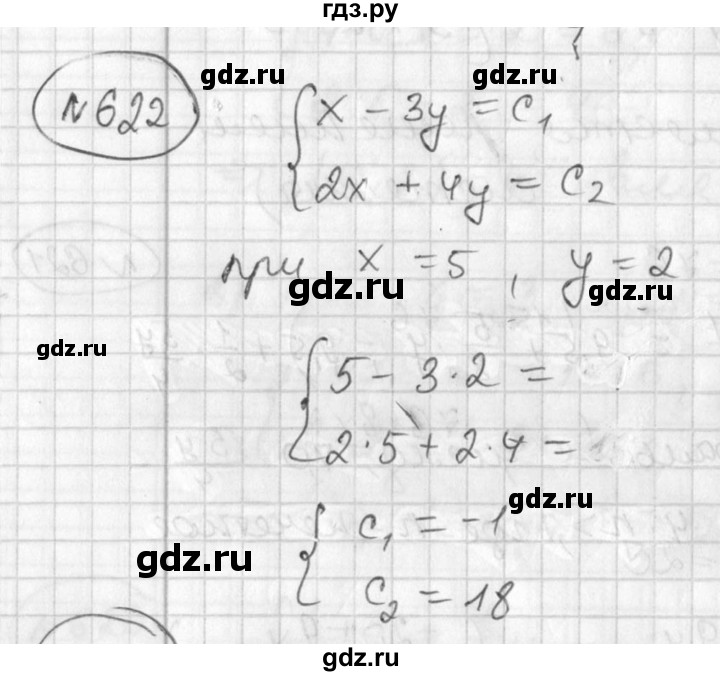 гдз.ру
gdz.ru gdz.ru
№ 622
{ x - 3y = c₁
2x + 4y = c₂
при x = 5, y = 2
gdz.ru gdz.ru
gdz.ru
{ 5 - 3·2 =
2·5 + 2·4 =
gdz.ru
{ c₁ = -1
gdz.ru
c₂ = 18
gdz.ru